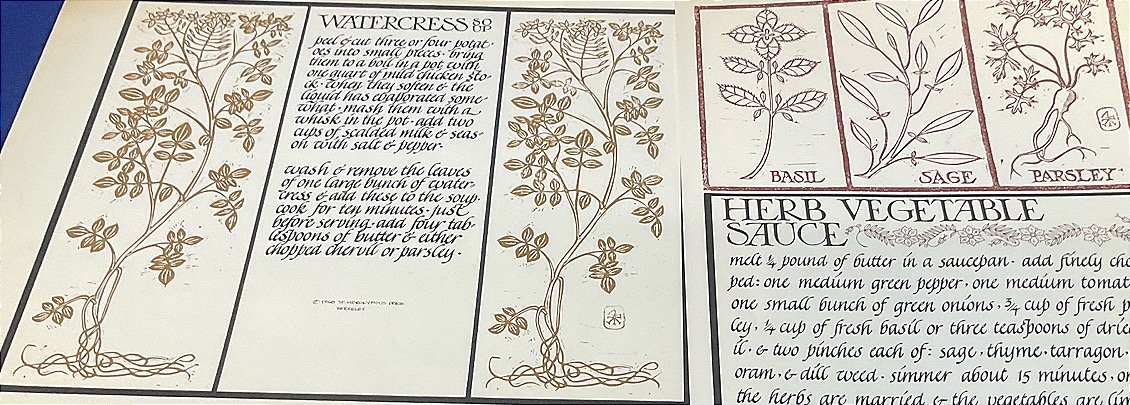 WATERCRESS SO
UP
peel & cut three or four potat-
oes into small pieces · bring
them to a boil in a pot with
one quart of mild chicken sto-
ck · when they soften & the
liquid has evaporated some-
what · mash them with a
whisk in the pot · add two
cups of scalded milk & seas-
on with salt & pepper·
wash & remove the leaves
of one large bunch of water-
cress & add these to the soup·
cook for ten minutes · just
before serving · add four tab-
lespoons of butter & either
chopped chervil or parsley ·
© 1968 ST HIERONYMOUS PRESS
BERKELEY
BASIL
SAGE
PARSLEY
HERB VEGETABLE
SAUCE
melt ¼ pound of butter in a saucepan · add finely cho
ped: one medium green pepper, one medium tomat
one small bunch of green onions, ¾ cup of fresh p
ley, ¼ cup of fresh basil or three teaspoons of drie
il, & two pinches each of: sage, thyme, tarragon,
oram, & dill weed · simmer about 15 minutes, or
the herbs are married & the vegetables are lim